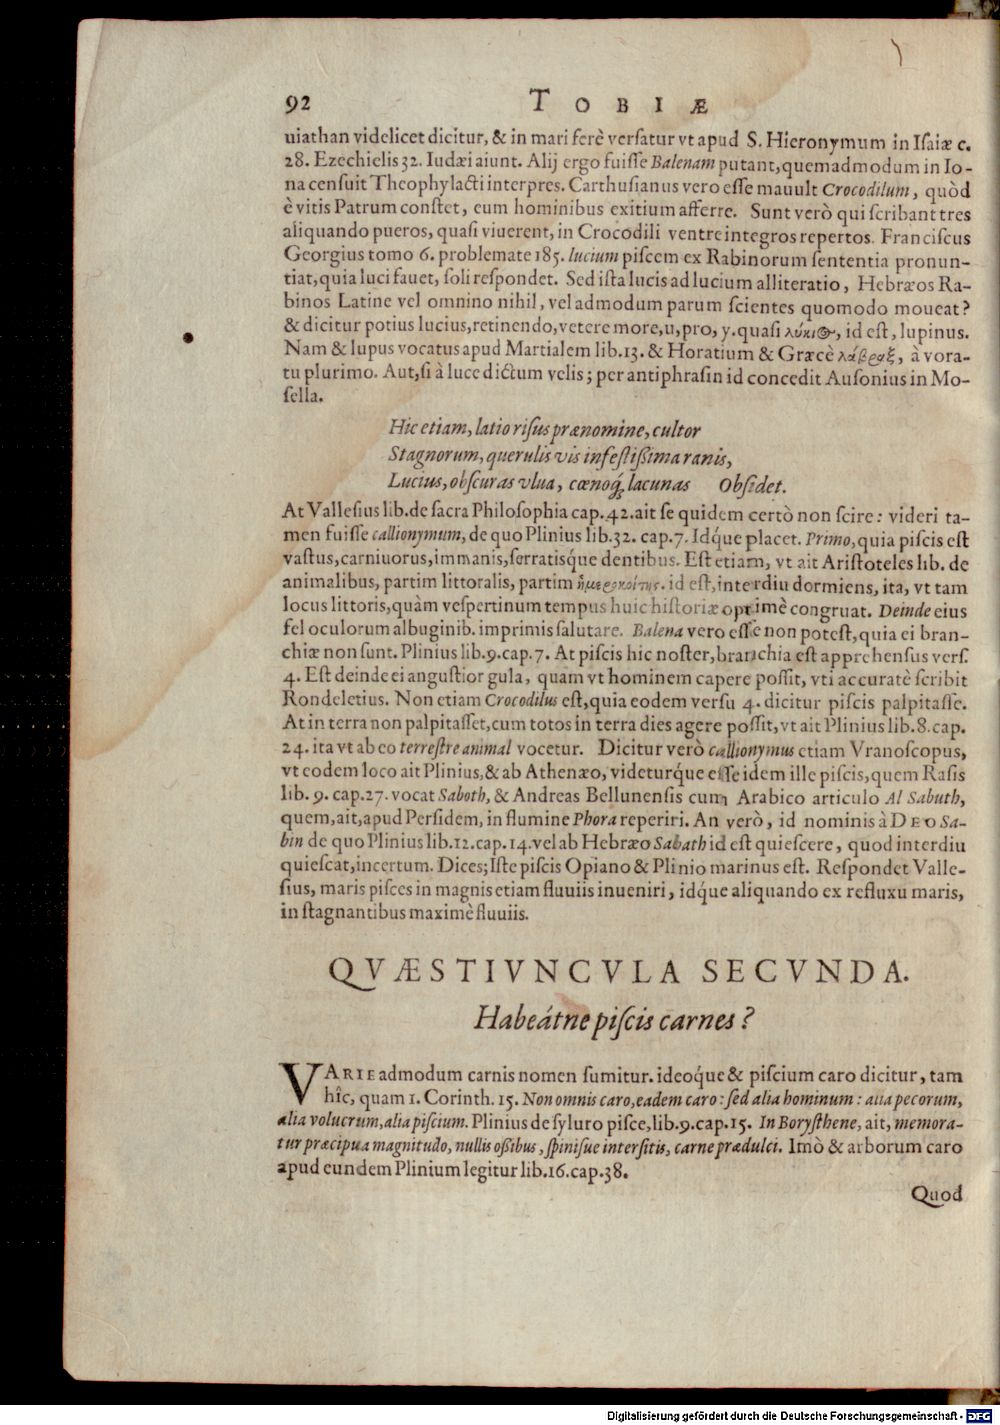 92 TOBIÆ
uiathan videlicet dicitur, & in mari ferè verſatur vt apud S. Hieronymum in Iſaiæ c.
28. Ezechielis 32. Iudæi aiunt. Alij ergo fuiſſe Balenam putant, quemadmodum in Io-
na cenſuit Theophylacti interpres. Carthuſianus vero eſſe mauult Crocodilum, quòd
è vitis Patrum conſtet, eum hominibus exitium afferre. Sunt verò qui ſcribant tres
aliquando pueros, quaſi viuerent, in Crocodili ventre integros repertos. Franciſcus
Georgius tomo 6. problemate 185. lucium piſcem ex Rabinorum ſententia pronun-
tiat, quia luci fauet, ſoli reſpondet. Sed iſta lucis ad lucium alliteratio, Hebræos Ra-
binos Latine vel omnino nihil, vel admodum parum ſcientes quomodo moueat?
& dicitur potius lucius, retinendo, vetere more, u, pro, y. quaſi λύκιος, id eſt, lupinus.
Nam & lupus vocatus apud Martialem lib. 13. & Horatium & Græcè λάβραξ, à vora-
tu plurimo. Aut, ſi à luce dictum velis; per antiphraſin id concedit Auſonius in Mo-
ſella.
Hic etiam, latio riſus prænomine, cultor
Stagnorum, querulis vis infeſtißima ranis,
Lucius, obſcuras vlua, cœnoq́, lacunas Obſidet.
At Valleſius lib. de ſacra Philoſophia cap. 42. ait ſe quidem certò non ſcire: videri ta-
men fuiſſe callionymum, de quo Plinius lib. 32. cap. 7. Idq́ue placet. Primo, quia piſcis eſt
vaſtus, carniuorus, immanis, ſerratisq́ue dentibus. Eſt etiam, vt ait Ariſtoteles lib. de
animalibus, partim littoralis, partim ἡμεροκοίτης. id eſt, interdiu dormiens, ita, vt tam
locus littoris, quàm veſpertinum tempus huic hiſtoriæ optimè congruat. Deinde eius
fel oculorum albuginib. imprimis ſalutare. Balena vero eſſe non poteſt, quia ei bran-
chiæ non ſunt. Plinius lib. 9. cap. 7. At piſcis hic noſter, branchia eſt apprehenſus verſ.
4. Eſt deinde ei anguſtior gula, quam vt hominem capere poſſit, vti accuratè ſcribit
Rondeletius. Non etiam Crocodilus eſt, quia eodem verſu 4. dicitur piſcis palpitaſſe.
At in terra non palpitaſſet, cum totos in terra dies agere poſſit, vt ait Plinius lib. 8. cap.
24. ita vt ab eo terreſtre animal vocetur. Dicitur verò callionymus etiam Vranoſcopus,
vt eodem loco ait Plinius, & ab Athenæo, videturq́ue eſſe idem ille piſcis, quem Raſis
lib. 9. cap. 27. vocat Saboth, & Andreas Bellunenſis cum Arabico articulo Al Sabuth,
quem, ait, apud Perſidem, in flumine Phora reperiri. An verò, id nominis à DEO Sa-
bin de quo Plinius lib. 12. cap. 14. vel ab Hebræo Sabath id eſt quieſcere, quod interdiu
quieſcat, incertum. Dices; Iſte piſcis Opiano & Plinio marinus eſt. Reſpondet Valle-
ſius, maris piſces in magnis etiam fluuiis inueniri, idq́ue aliquando ex refluxu maris,
in ſtagnantibus maximè fluuiis.
QVÆSTIVNCVLA SECVNDA.
Habeátne piſcis carnes?
VARIE admodum carnis nomen ſumitur. ideoq́ue & piſcium caro dicitur, tam
hîc, quam 1. Corinth. 15. Non omnis caro, eadem caro: ſed alia hominum: alia pecorum,
alia volucrum, alia piſcium. Plinius de ſyluro piſce, lib. 9. cap. 15. In Boryſthene, ait, memora-
tur præcipua magnitudo, nullis oßibus, ſpiniſue interſitis, carne prædulci. Imò & arborum caro
apud eundem Plinium legitur lib. 16. cap. 38.
Quod
Digitalisierung gefördert durch die Deutsche Forschungsgemeinschaft - DFG